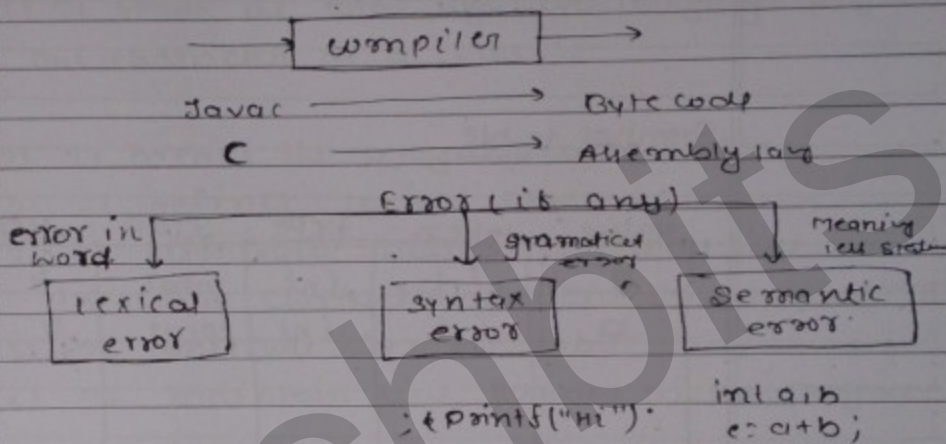 compiler
Javac → Byte code
C → Assembly lang
Error (if any)
error in word
gramatical error
Meaning less
Lexical error
Syntax error
Semantic error
; printf("Hi")
int a,b
c=a+b;
hbits